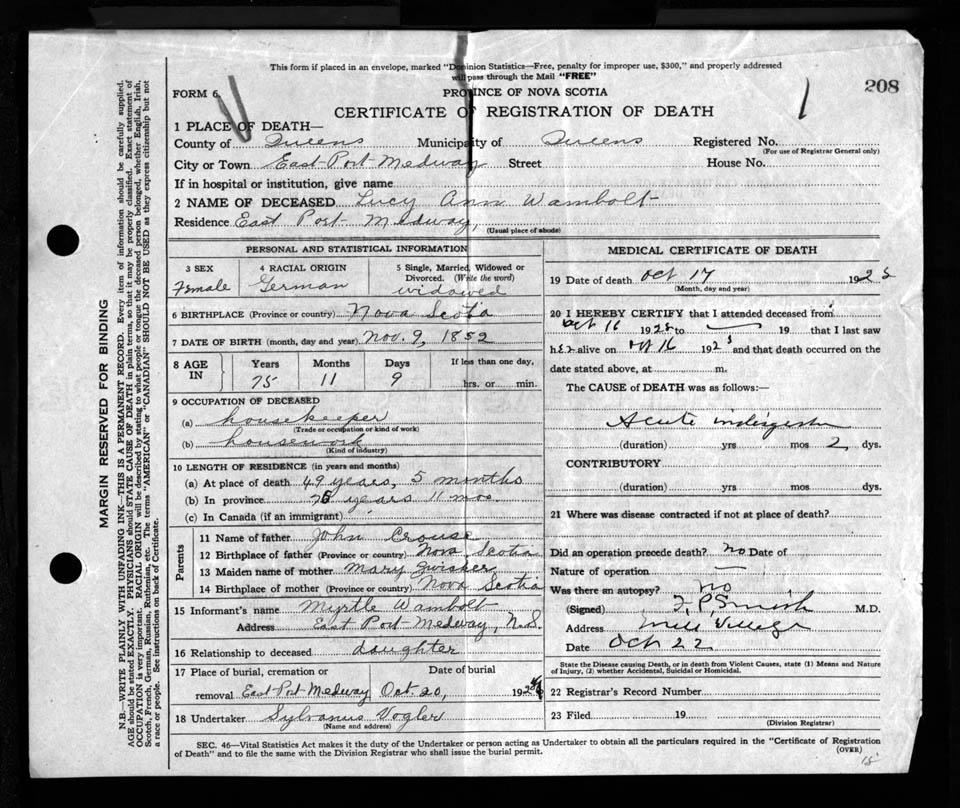 This form if placed in an envelope, marked "Dominion Statistics—Free, penalty for improper use, $300," and properly addressed
will pass through the Mail "FREE"
208
FORM 6
PROVINCE OF NOVA SCOTIA
CERTIFICATE OF REGISTRATION OF DEATH
1 PLACE OF DEATH—
County of Queens Municipality of Queens Registered No.
(For use of Registrar General only)
City or Town East Port Medway Street House No.
If in hospital or institution, give name
2 NAME OF DECEASED Lucy Ann Wambolt
Residence East Port Medway,
(Usual place of abode)
PERSONAL AND STATISTICAL INFORMATION
3 SEX 4 RACIAL ORIGIN 5 Single, Married, Widowed or
Divorced. (Write the word)
Female German widowed
6 BIRTHPLACE (Province or country) Nova Scotia
7 DATE OF BIRTH (month, day and year) Nov. 9, 1852
8 AGE IN Years Months Days If less than one day,
75 11 9 hrs. or min.
9 OCCUPATION OF DECEASED
(a) housekeeper
(Trade or occupation or kind of work)
(b) housework
(Kind of industry)
10 LENGTH OF RESIDENCE (in years and months)
(a) At place of death 49 years, 5 months
(b) In province 75 years 11 mos.
(c) In Canada (if an immigrant)
Parents
11 Name of father John Crouse
12 Birthplace of father (Province or country) Nova Scotia
13 Maiden name of mother Mary
14 Birthplace of mother (Province or country) Nova Scotia
15 Informant's name Myrtle Wambolt
Address East Port Medway, N.S.
16 Relationship to deceased daughter
17 Place of burial, cremation or Date of burial
removal East Port Medway Oct. 20, 192
18 Undertaker Sylvanus Vogler
(Name and address)
MEDICAL CERTIFICATE OF DEATH
19 Date of death Oct 17 1928
(Month, day and year)
20 I HEREBY CERTIFY that I attended deceased from
Oct 16 1928 to — 19 that I last saw
her alive on Oct 16 1928 and that death occurred on the
date stated above, at m.
The CAUSE of DEATH was as follows:—
Acute indigestion
(duration) yrs mos 2 dys.
CONTRIBUTORY
(duration) yrs mos dys.
21 Where was disease contracted if not at place of death?
Did an operation precede death? no Date of
Nature of operation —
Was there an autopsy? no
(Signed) F. P. Smith M.D.
Address Mill Village
Date Oct 22
State the Disease causing Death, or in death from Violent Causes, state (1) Means and Nature
of Injury, (2) whether Accidental, Suicidal or Homicidal.
22 Registrar's Record Number
23 Filed 19
(Division Registrar)
SEC. 46—Vital Statistics Act makes it the duty of the Undertaker or person acting as Undertaker to obtain all the particulars required in the "Certificate of Registration
of Death" and to file the same with the Division Registrar who shall issue the burial permit.
(OVER)
MARGIN RESERVED FOR BINDING
N.B.—WRITE PLAINLY WITH UNFADING INK—THIS IS A PERMANENT RECORD. Every item of information should be carefully supplied.
AGE should be stated EXACTLY. PHYSICIANS should STATE CAUSE OF DEATH in plain terms, so that it may be properly classified. Exact statement of
OCCUPATION is very important. RACIAL ORIGIN will be described by stating to what people or tongue the deceased person belonged, whether English, Irish,
Scotch, French, German, Russian, Ruthenian, etc. The terms "AMERICAN" or "CANADIAN" SHOULD NOT BE USED as they express citizenship but not
a race or people. See instructions on back of Certificate.